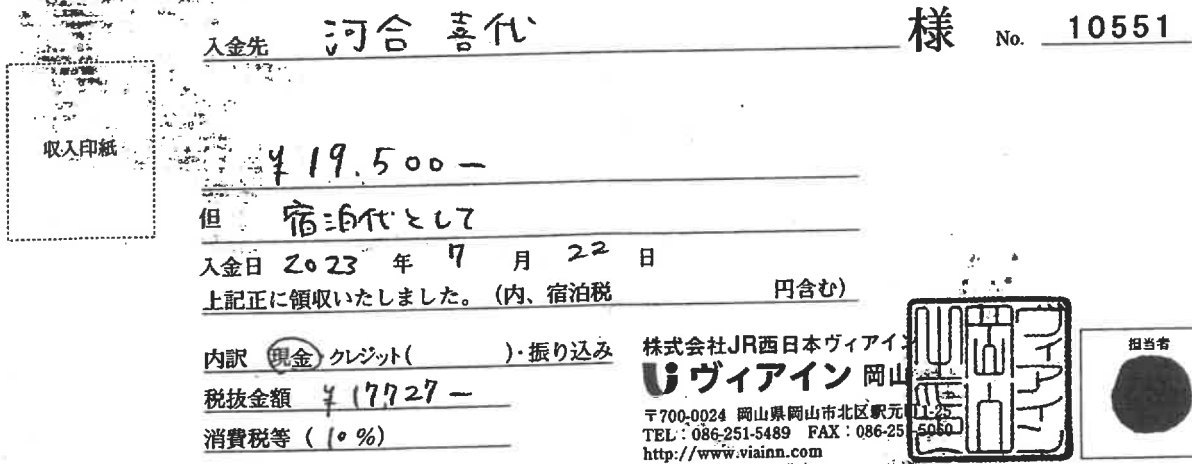 入金先 河合 喜代 様 No. 10551
収入印紙
¥19.500−
但 宿泊代として
入金日 2023 年 7 月 22 日
上記正に領収いたしました。(内、宿泊税 円含む)
内訳 現金 クレジット( )・振り込み
税抜金額 ¥17,727−
消費税等 (10%)
株式会社JR西日本ヴィアイン
ヴィアイン 岡山
〒700-0024 岡山県岡山市北区駅元町1-25
TEL:086-251-5489 FAX:086-251-5060
http://www.viainn.com
担当者